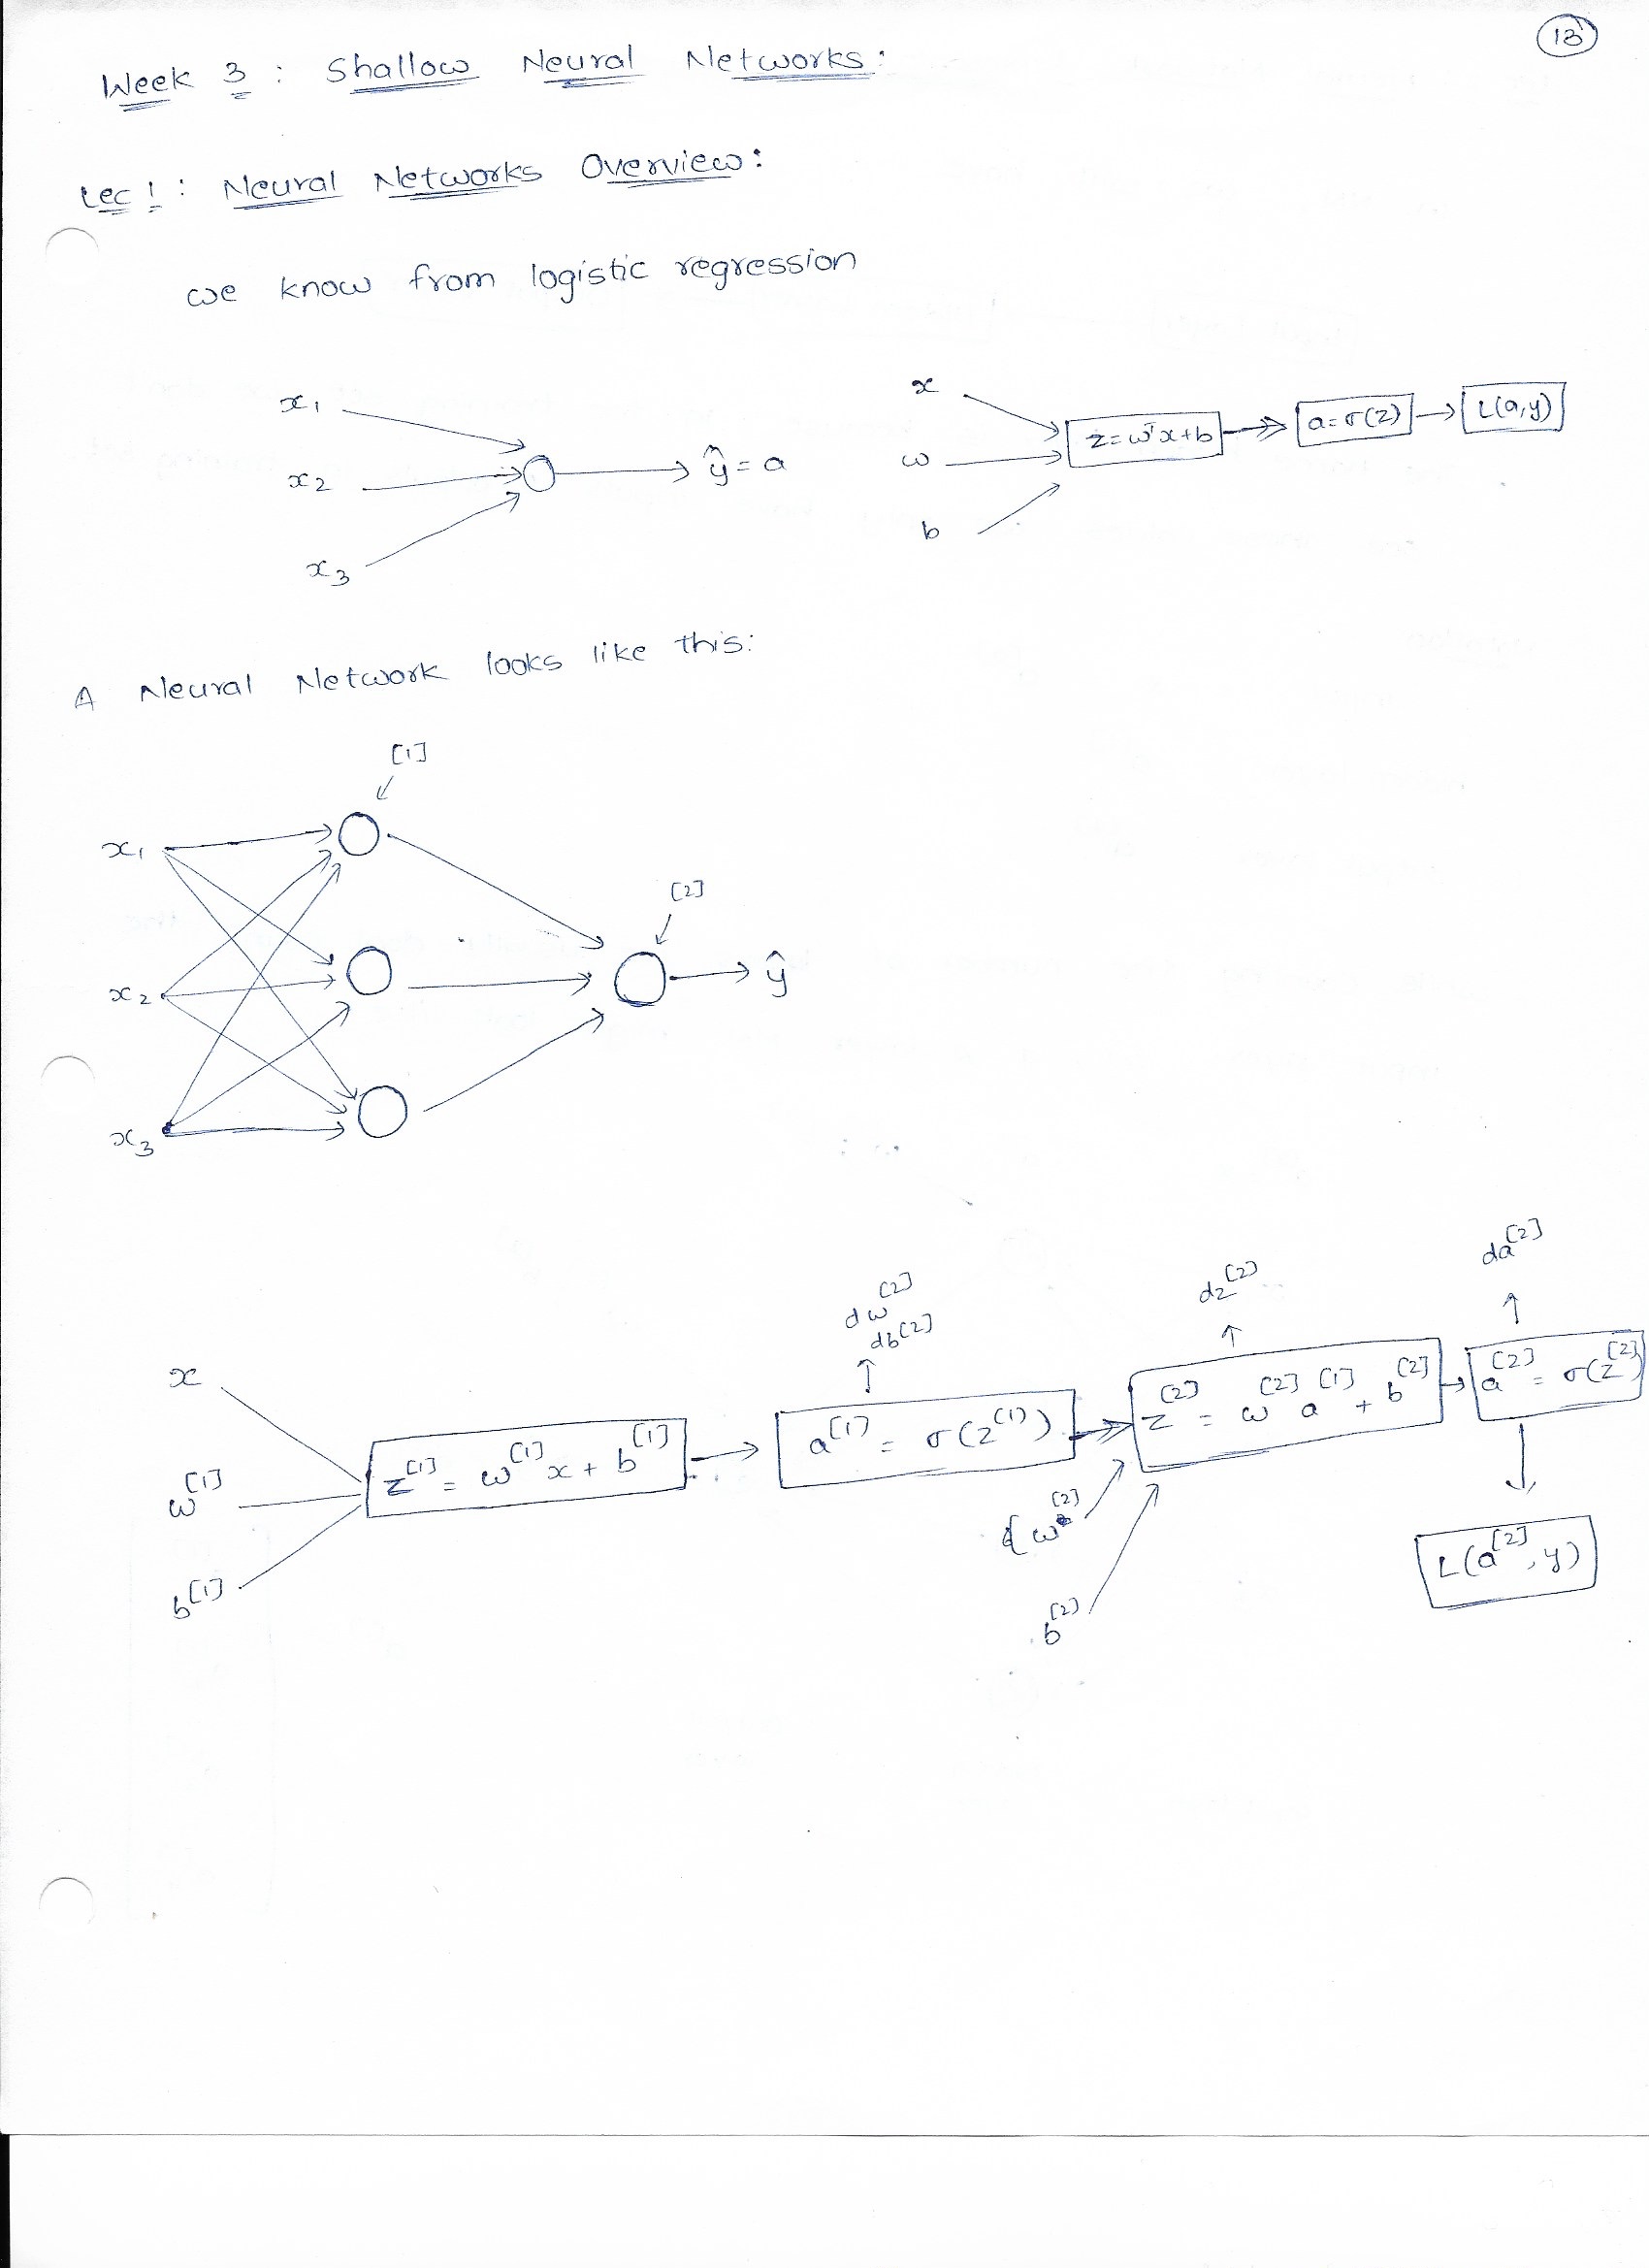 13
Week 3 : Shallow Neural Networks:
Lec 1 : Neural Networks Overview:
we know from logistic regression
x₁
x₂
x₃
ŷ = a
x
w
b
z = wᵀx + b
a = σ(z)
L(a, y)
A Neural Network looks like this:
[1]
x₁
x₂
x₃
[2]
ŷ
x
w^[1]
b^[1]
z^[1] = w^[1] x + b^[1]
dw^[2]
db^[2]
a^(1) = σ(z^(1))
w^[2]
b^[2]
dz^[2]
z^[2] = w^[2] a^[1] + b^[2]
da^[2]
a^[2] = σ(z^[2])
L(a^[2], y)